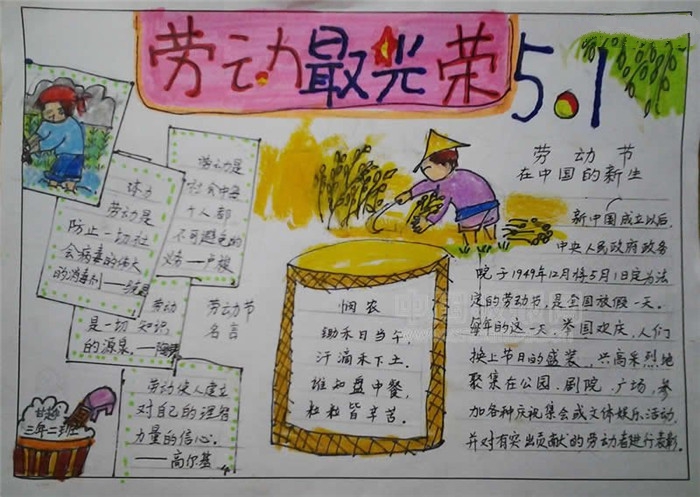 劳动最光荣
5.1
劳动是
社会中每
个人都
不可避免的
义务一卢梭
体力
劳动是
防止一切社
会病毒的伟大
的消毒剂——
劳动
是一切知识
的源泉。——陶铸
劳动节
名言
劳动使人建立
对自己的理智
力量的信心。
——高尔基
三年二班
悯农
锄禾日当午,
汗滴禾下土。
谁知盘中餐,
粒粒皆辛苦。
劳动节
在中国的新生
新中国成立以后,
中央人民政府政务
院于1949年12月将5月1日定为法
定的劳动节,是全国放假一天。
每年的这一天,举国欢庆,人们
换上节日的盛装,兴高采烈地
聚集在公园、剧院、广场,参
加各种庆祝集会或文体娱乐活动,
并对有突出贡献的劳动者进行表彰。